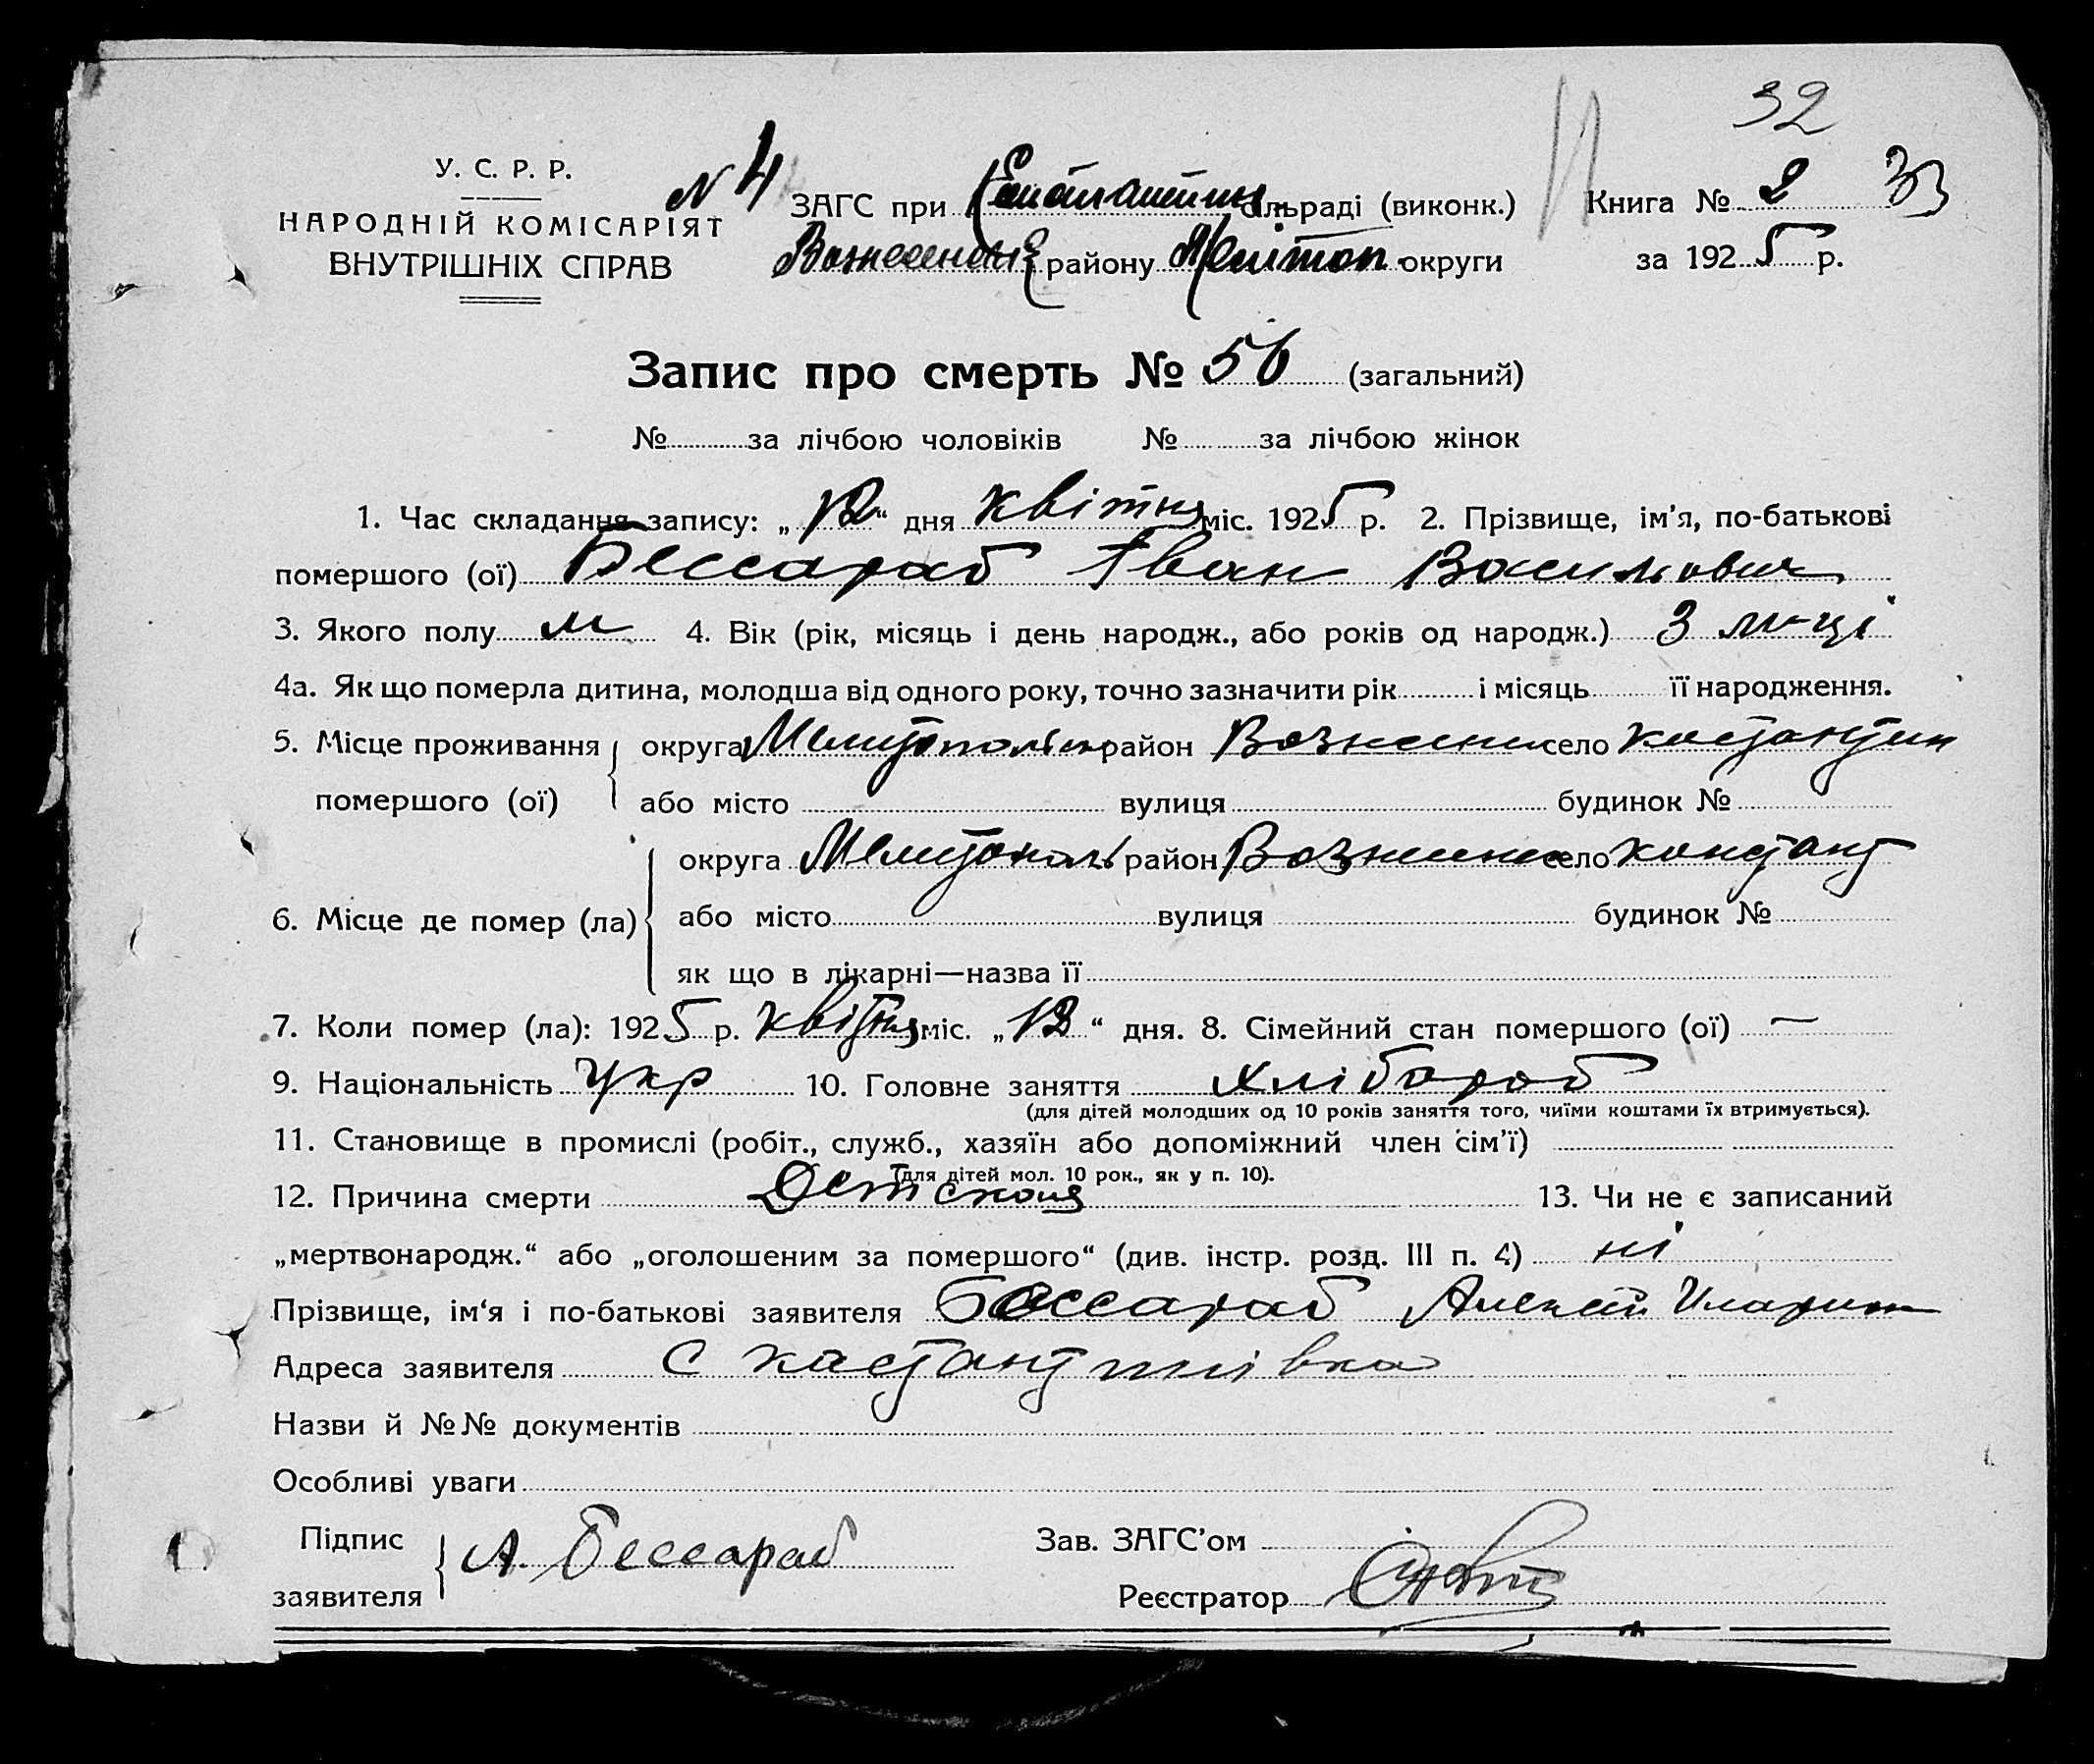 32
У. С. Р. Р.
НАРОДНІЙ КОМІСАРІЯТ
ВНУТРІШНІХ СПРАВ
N 4 ЗАГС при сільраді (виконк.) Книга № 2 33
району округи за 1925 р.
Запис про смерть № 56 (загальний)
№ за лічбою чоловіків № за лічбою жінок
1. Час складання запису: „12“ дня квітня міс. 1925 р. 2. Прізвище, ім’я, по-батькові
помершого (ої) Бессараб Іван Васильович
3. Якого полу м 4. Вік (рік, місяць і день народж., або років од народж.) 3 м-ці
4а. Як що померла дитина, молодша від одного року, точно зазначити рік і місяць її народження.
5. Місце проживання округа район село
помершого (ої) або місто вулиця будинок №
округа Мелитополь район село констант
6. Місце де помер (ла) або місто вулиця будинок №
як що в лікарні—назва її
7. Коли помер (ла): 1925 р. квітня міс. „12“ дня. 8. Сімейний стан помершого (ої) —
9. Національність Укр 10. Головне заняття хлібороб
(для дітей молодших од 10 років заняття того, чиїми коштами їх втримується).
11. Становище в промислі (робіт., служб., хазяїн або допоміжний член сім’ї)
(для дітей мол. 10 рок., як у п. 10).
12. Причина смерти Детская 13. Чи не є записаний
„мертвонародж.“ або „оголошеним за помершого“ (див. інстр. розд. III п. 4) ні
Прізвище, ім‘я і по-батькові заявителя Бессараб Алексей
Адреса заявителя С кастантинівка
Назви й №№ документів
Особливі уваги
Підпис А. Бессараб Зав. ЗАГС’ом
заявителя Реєстратор